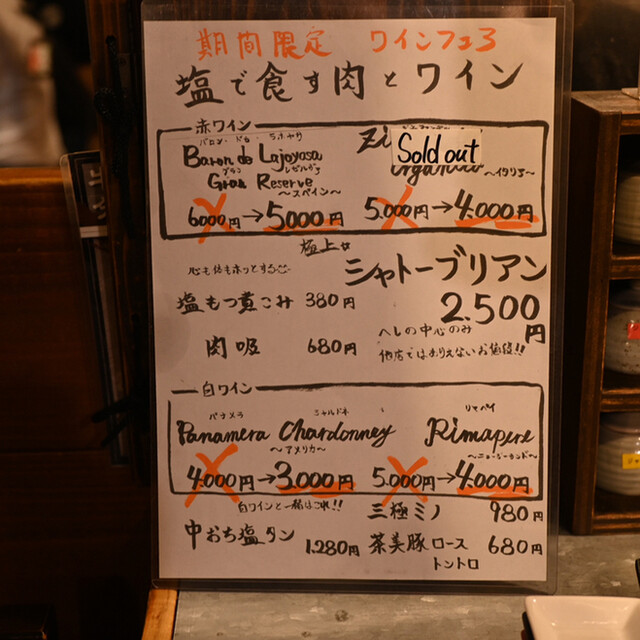 期間限定 ワインフェス
塩で食す肉とワイン
赤ワイン
バロン・ド・ラホヤサ
Baron de Lajoyosa
グラン レゼルヴァ
Gran Reserve
～スペイン～
6000円→5000円
Zi
Sold out
organico
～イタリア～
5.000円→4.000円
極上☆
心も体もホッとする
シャトーブリアン
塩もつ煮こみ 380円
2.500円
肉吸 680円
ヘレの中心のみ
他店ではありえないお値段!!
白ワイン
パナメラ シャルドネ
Panamera Chardonney
～アメリカ～
4.000円→3.000円
リマペレ
Rimapere
～ニュージーランド～
5.000円→4.000円
白ワインと一緒にコレ!!
中おち塩タン 1.280円
三極ミノ 980円
茶美豚ロース 680円
トントロ